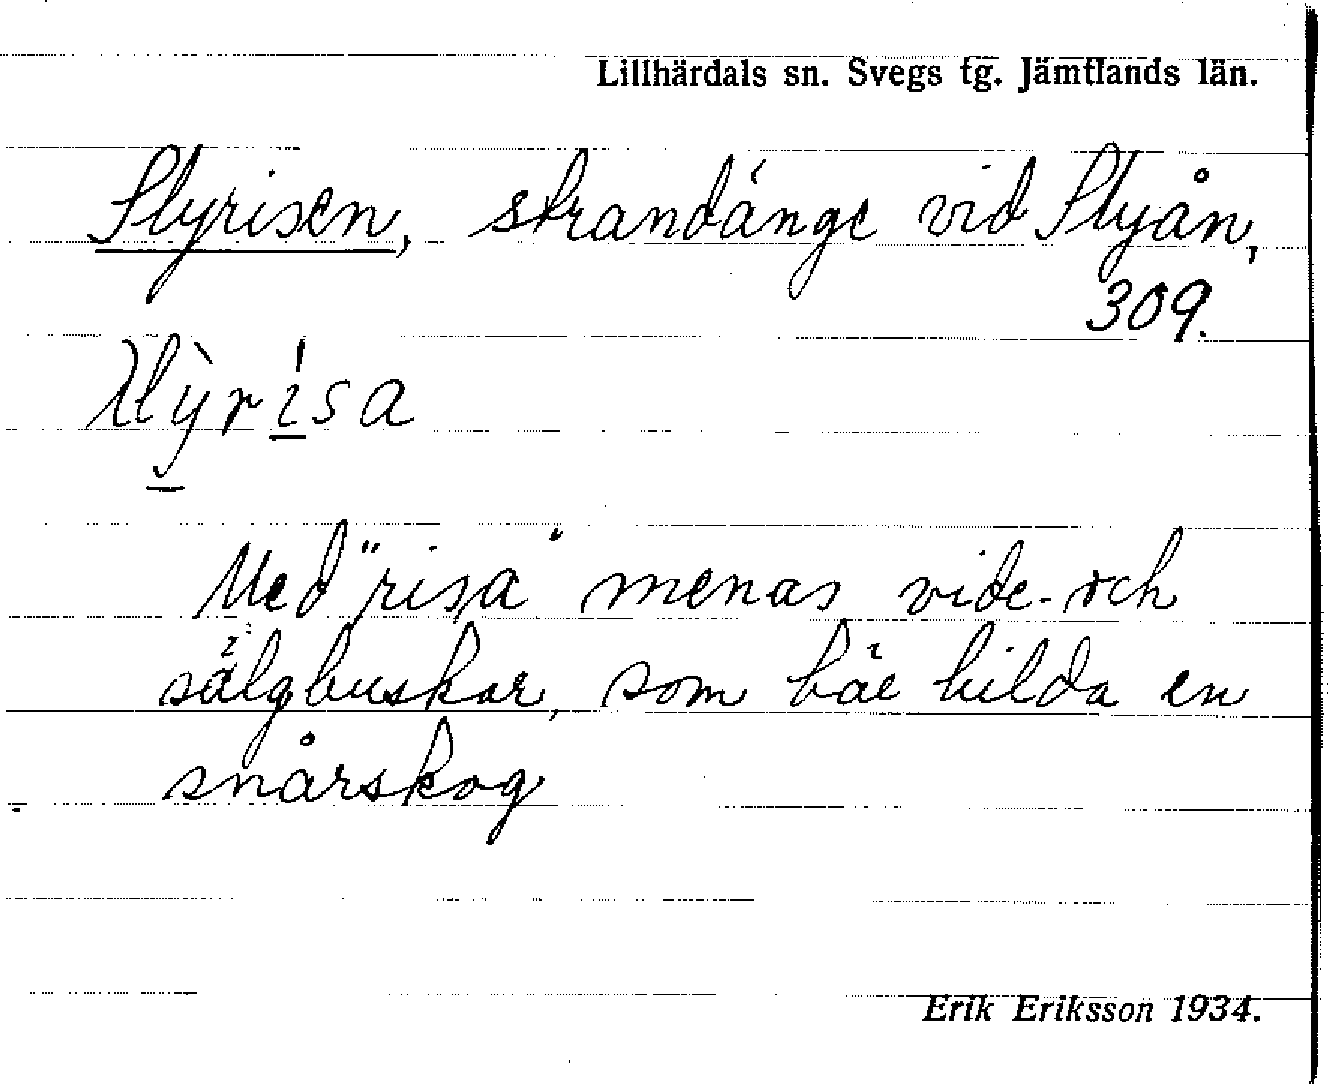 Lillhärdals sn. Svegs tg. Jämtlands län.
Slyrisen, strandänge vid Slyån,
309.
slỳrísa
Med "risa" menas vide- och
sälgbuskar, som båe bilda en
snårskog
Erik Eriksson 1934.